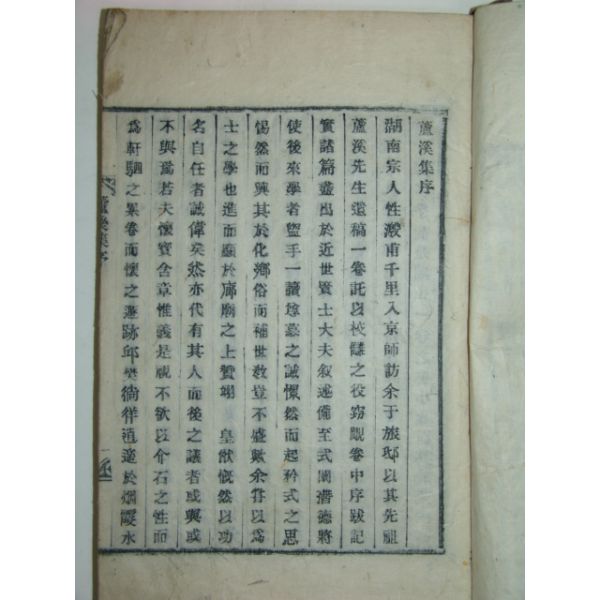 蘆溪集序
湖南宗人性澱甫千里入京師訪余于旅邸以其先祖
蘆溪先生遺稿一卷託以校讎之役窃覵卷中序跋記
實諸篇盡出於近世賢士大夫叙述備至式闡潛德將
使後來學者盥手一讀尊慕之誠愀然而起矜式之思
惕然而興其於化鄕俗而補世敎豈不盛歟余嘗以爲
士之學也進而顯於廊廟之上贊翊 皇猷慨然以功
名自任者誠偉矣然亦代有其人而後之議者或與或
不與焉若夫懷寶含章惟義是視不欲以介石之性而
爲軒駟之累卷而懷之遯跡邱樊徜徉逍遙於烟霞水
蘆溪集序
一